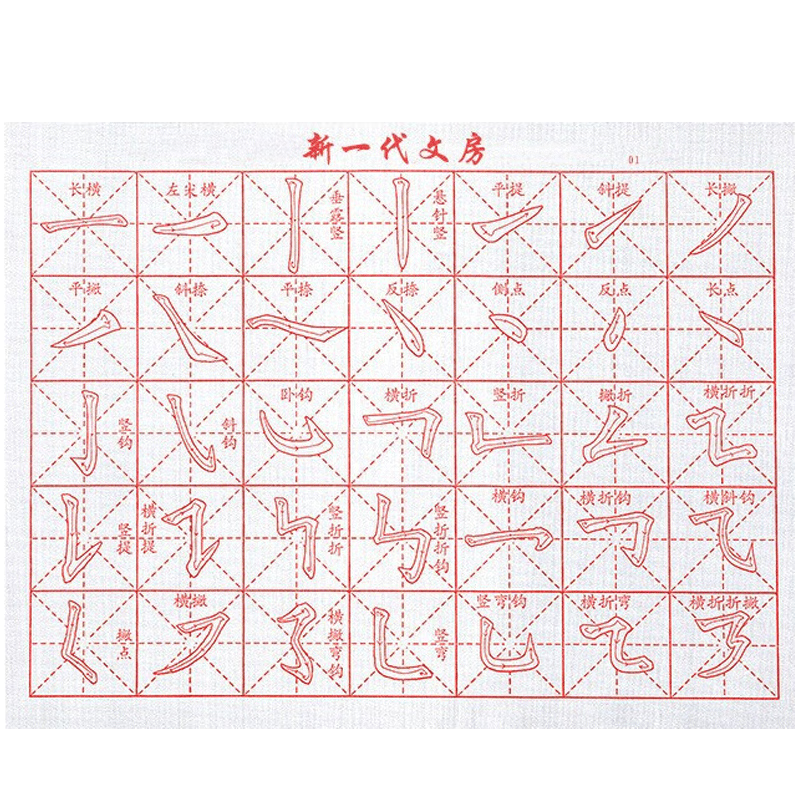 新一代文房
01
长横
左尖横
垂露竖
悬针竖
平提
斜提
长撇
平撇
斜捺
平捺
反捺
侧点
反点
长点
竖钩
斜钩
卧钩
横折
竖折
撇折
横折折
竖提
横折提
竖折折
竖折折钩
横钩
横折钩
横斜钩
撇点
横撇
横撇弯钩
竖弯
竖弯钩
横折弯
横折折撇